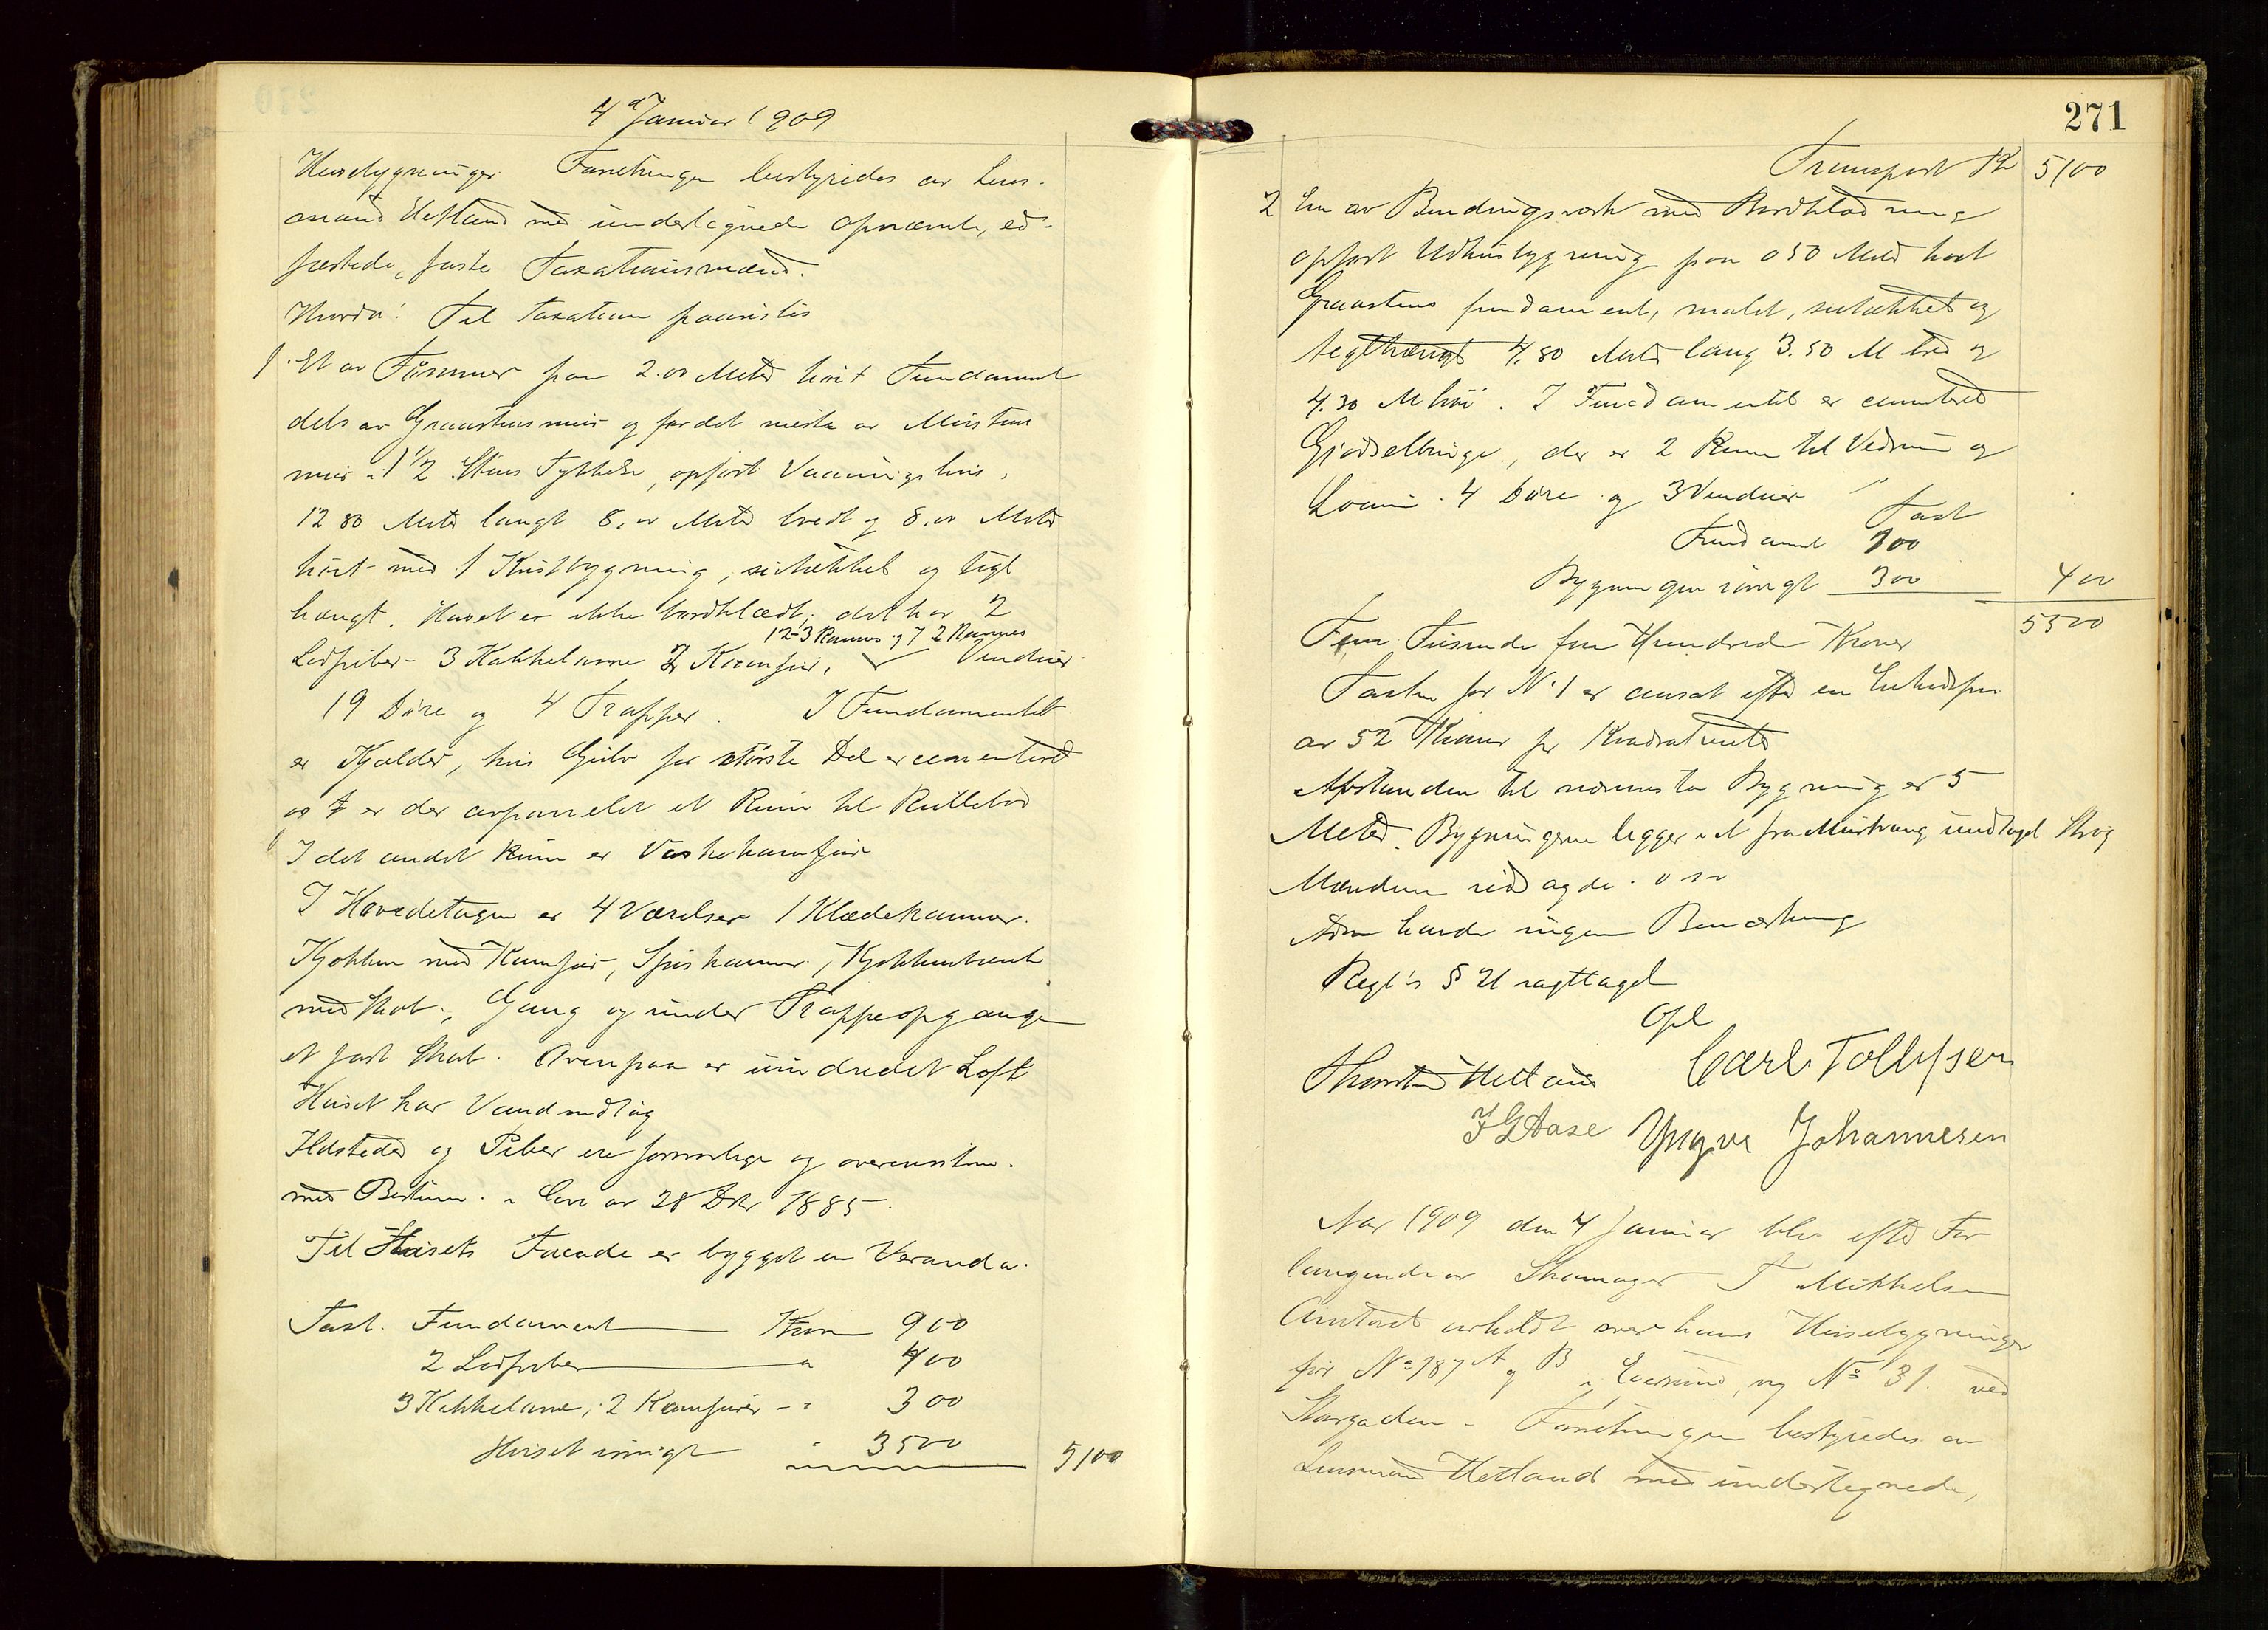 4d Januar 1909
Husebygninger. Forretningen bestyredes av Lens-
mand Hetland med undertegnede opnævnte, ed-
fæstede, faste Taxationsmænd.
Hvorda: Til Taxation paavistes
1. Et av Tømmer paa 2.00 Meter høit Fundament
dels av Graastensmur og for det meste av Mursten
mur i 1 1/2 Stens Tykkelse, opført Vaaningshus,
12 80 Meter langt 8,00 Meter bredt og 8,00 Meter
høit med 1 Kvistbygning, sutækket og tegl
hængt. Huset er ikke bordklædt, det har 2
12-3 Rammes og 7 2 Rammes
Lodpiber - 3 Kakkelovne 2 Komfur, Vinduer.
19 Døre og 4 Trapper. I Fundamentet
er Kjelder, hvis Gulv for største Del er cementeret
og er der avpanelet et Rum til Rullebod
I det andet Rum er Vaskekomfur
I Hovedetagen er 4 Værelser 1 Klædekammer.
Kjøkken med Komfur, Spiskammer, Kjøkkenbænk
med Skab, Gang og under Trappeopgangen
et fast Skab. Ovenpaa er uindredet Loft
Huset har Vandindlæg
Ildsteder og Piber ere forsvarlige og overensstem.
med Bestem. i Lov av 28 Dbr 1885.
Til Husets Facade er bygget en Veranda.
Taxt. Fundament Kron 900
2 Lodpiber " 400
3 Kakkelovne, 2 Komfurer - " 300
Huset iøvrigt " 3500 5100
271
Transport Kr 5100
2 En av Bindingsverk med Bordklædning
opført Udhusbygning paa 0 50 Meter høit
Graastens fundament, malet, sutækket og
teglhængt 4,80 Meter lang 3.50 M bred og
4.30 M høi. I Fundamentet er cementeret
Gjødselbinge, der er 2 Rum til Vedrum og
4 Døre og 3 Vinduer
Taxt
Fundament 100
Bygningen iøvrigt 300 400
5500
Fem Tusinde fem Hundrede Kroner
Taxten for No 1 er ansat efter en Enhedspris
av 52 Kroner pr Kvadratmeter
Afstanden til nærmeste Bygning er 5
Meter. Bygningerne ligger i et fra Murtvang undtaget Strøg
Mændene vedtagde. o s v
havde ingen Bemærkning
Regl's § 21 iagttaget
Opl
Thorsten Hetland Carl Tollefsen
F G Aase Yngve Johannesen
Aar 1909 den 4 Januar blev efter For
langende av Skomager T Mikkelsen
Omtaxt avholdt over hans Husebygninger
før No 187 A og B i Egersund, ny No 31 ved
Storgaden. Forretningen bestyredes av
Lensmand Hetland med undertegnede,